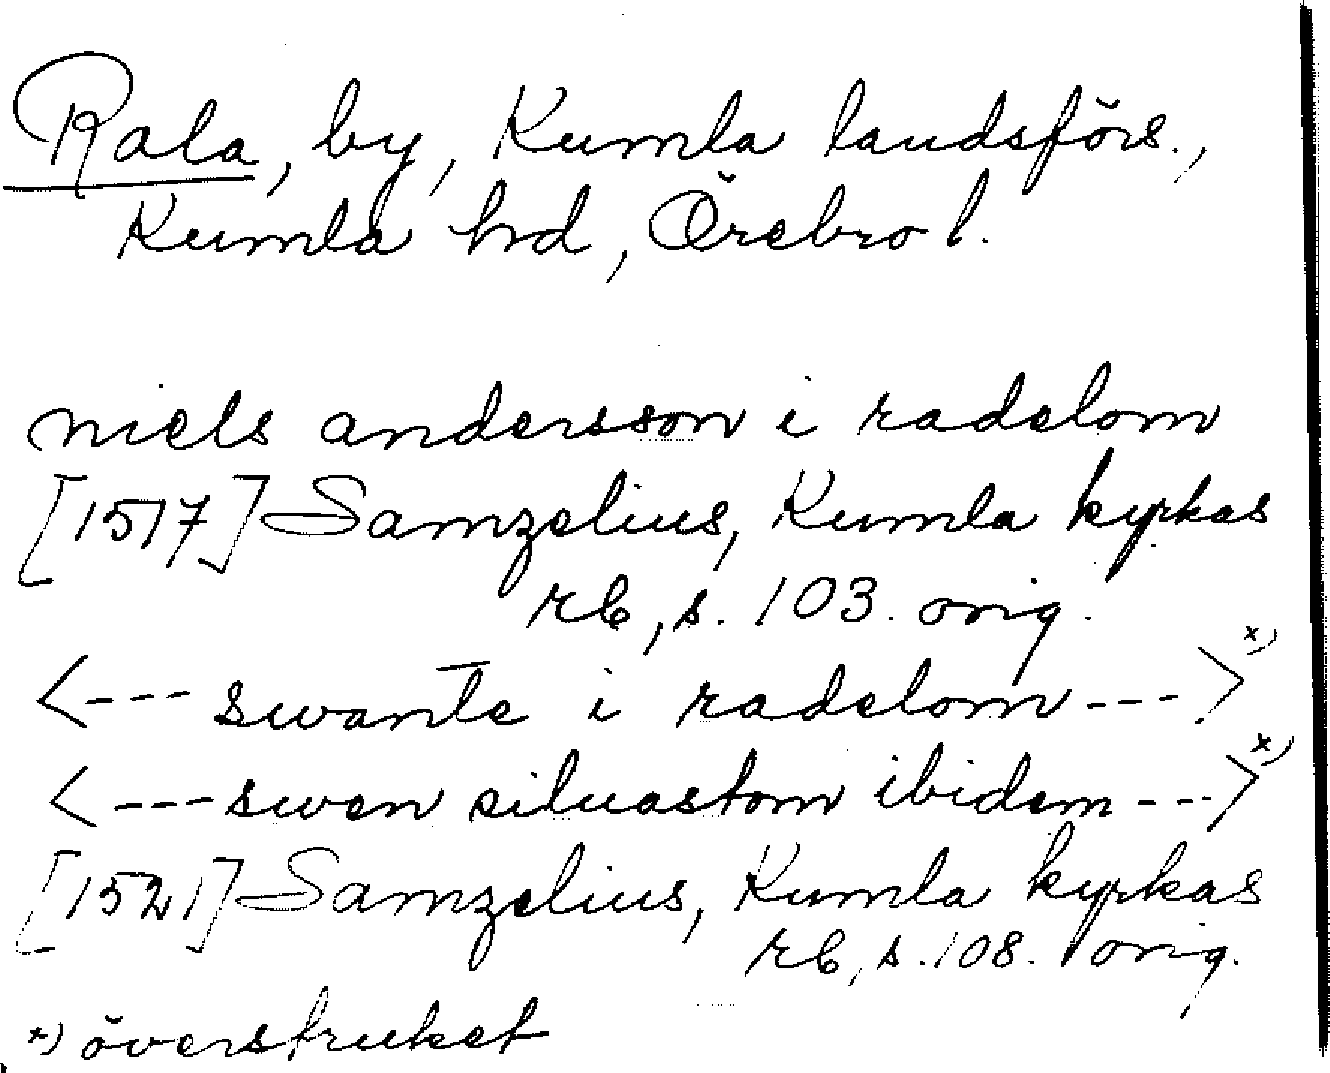 Rala, by, Kumla landsförs.,
Kumla hd, Örebro l.
niels andersson i radelom
[1517] Samzelius, Kumla kyrkas
rb, s. 103. orig.
<---swante i radelom--->x)
<---swen siluastom ibidem--->x)
[1521] Samzelius, Kumla kyrkas
rb, s. 108. orig.
x) överstruket